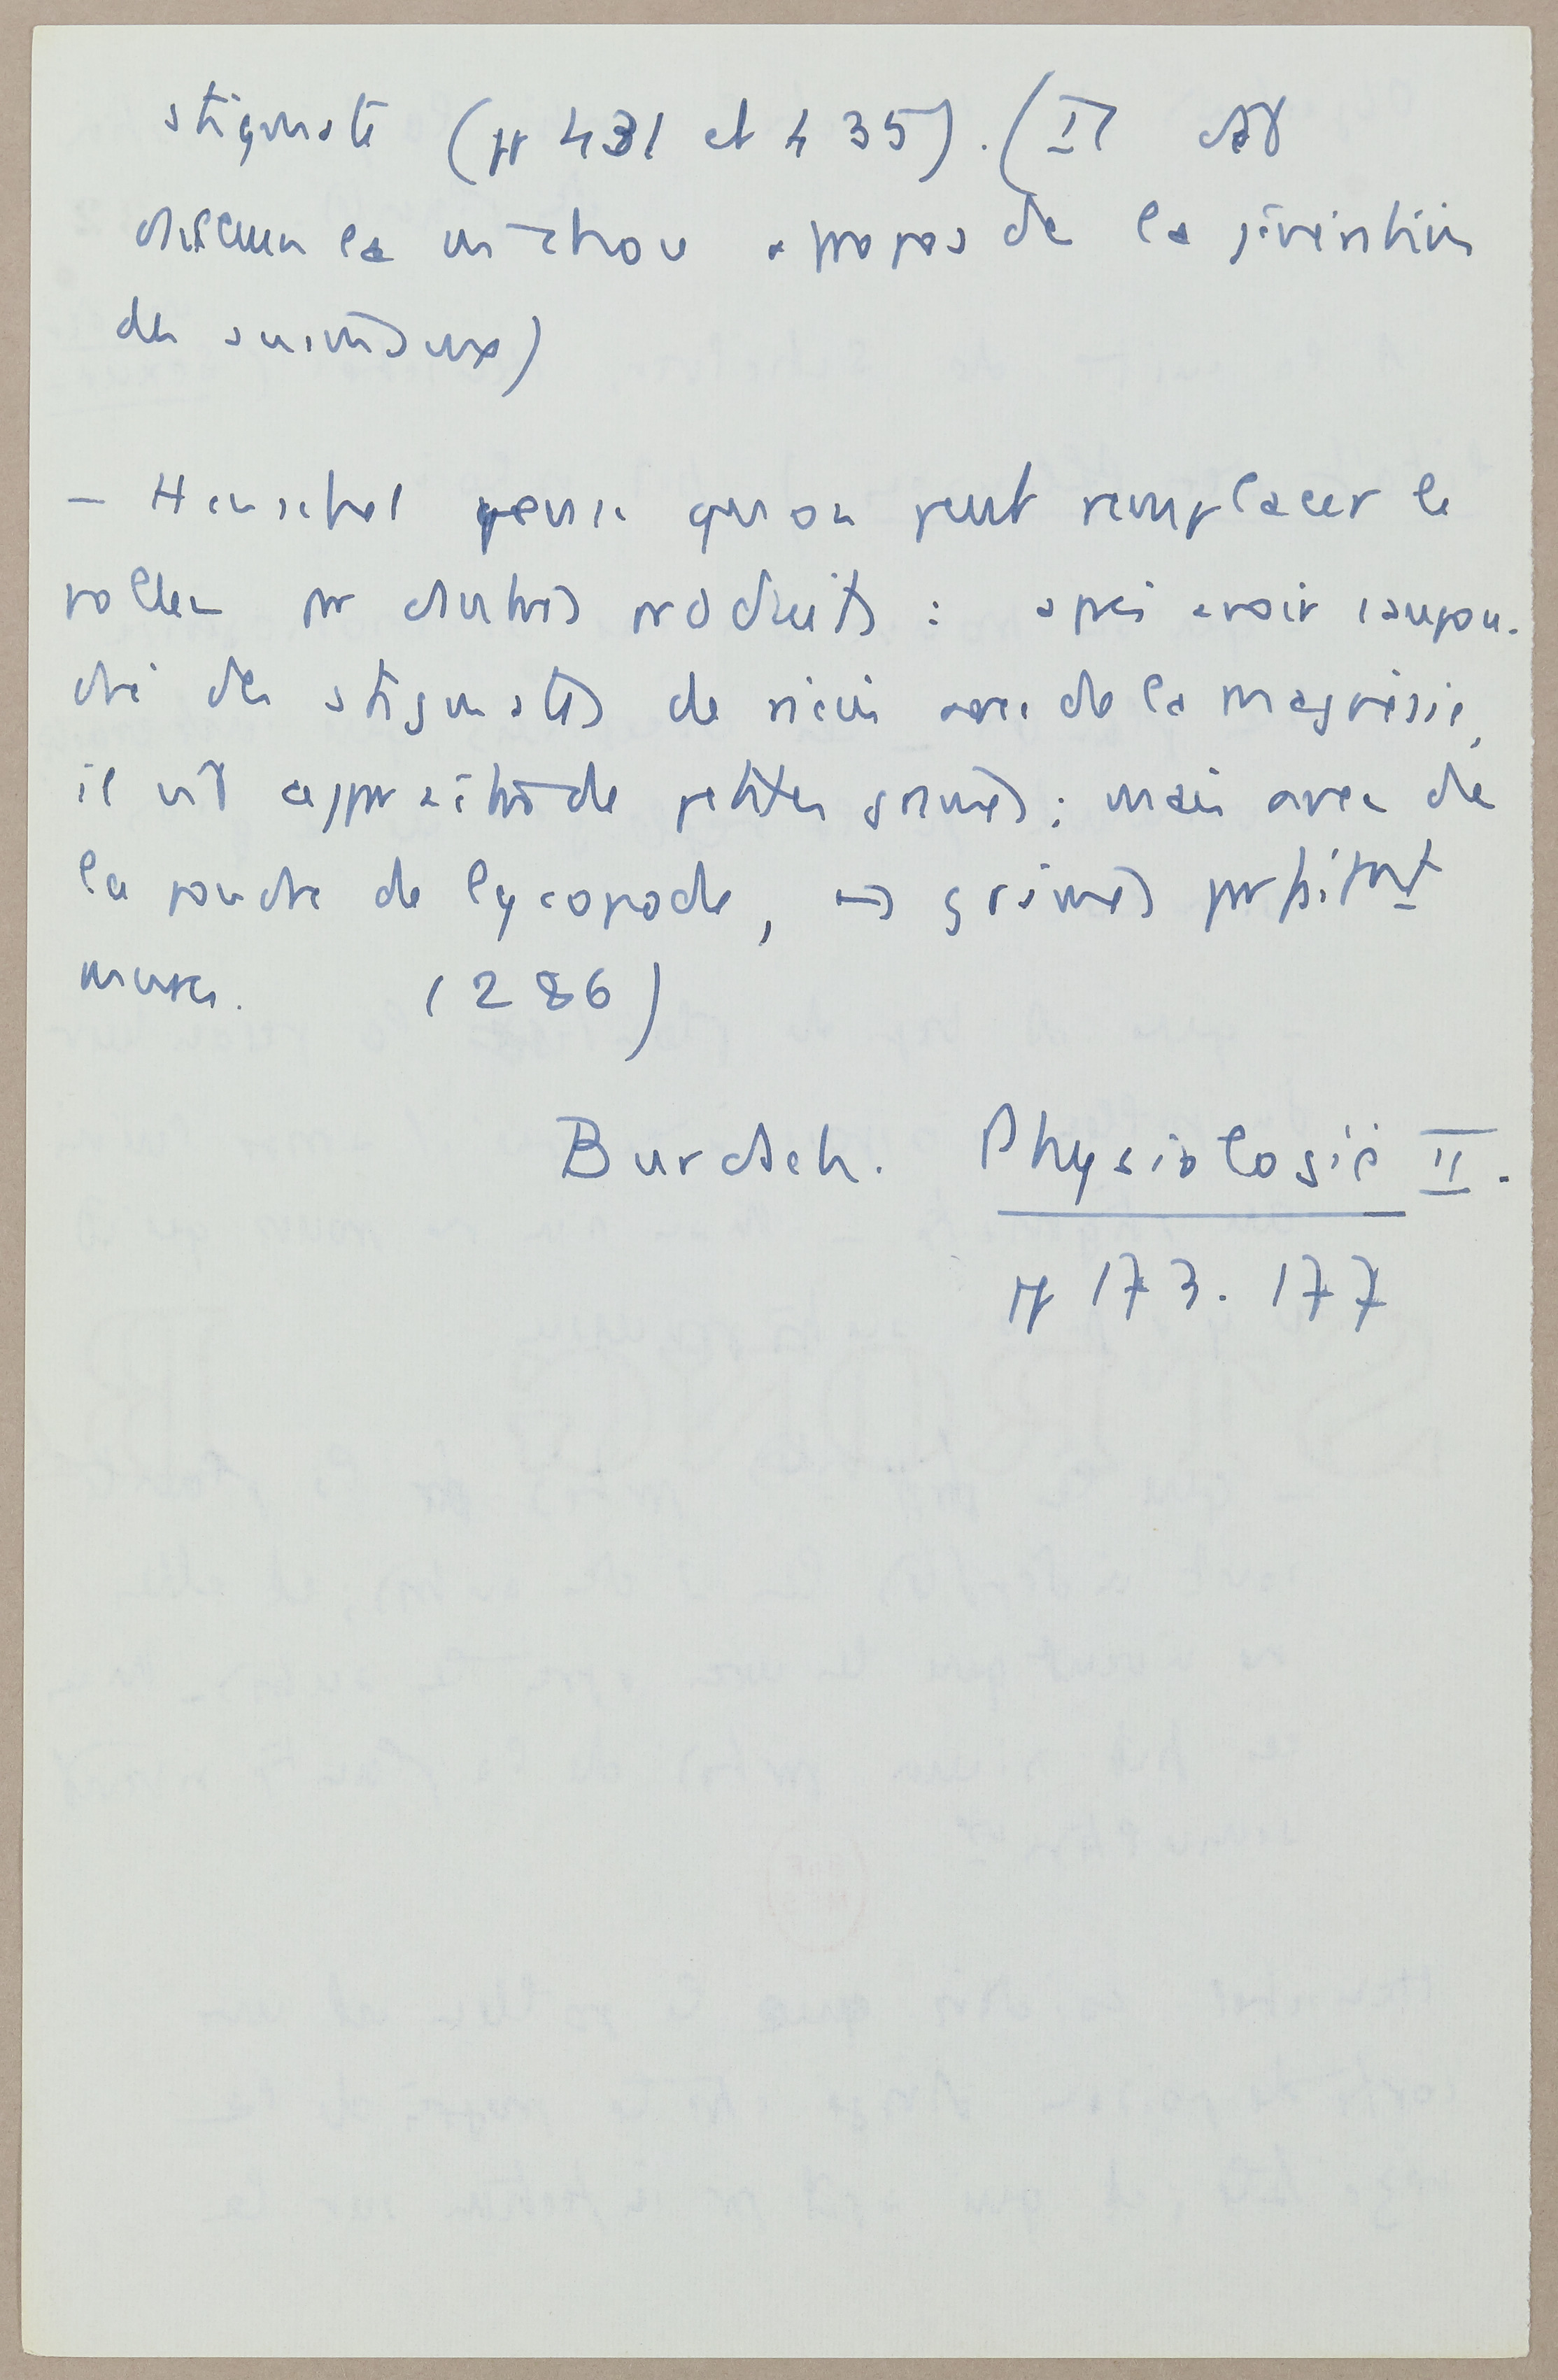 stigmate (pp 431 et 435). (Il
discuter la question à propos de la génération
des animaux)
— Henschel pense qu'on peut remplacer le
pollen par d'autres produits : après avoir saupou-
dré des stigmates de ricin avec de la magnésie,
il vit apparaître de petites graines ; mais avec de
la poudre de lycopode, des graines parfaitemt
mures. (286)
Burdach. Physiologie II.
pp 173. 177